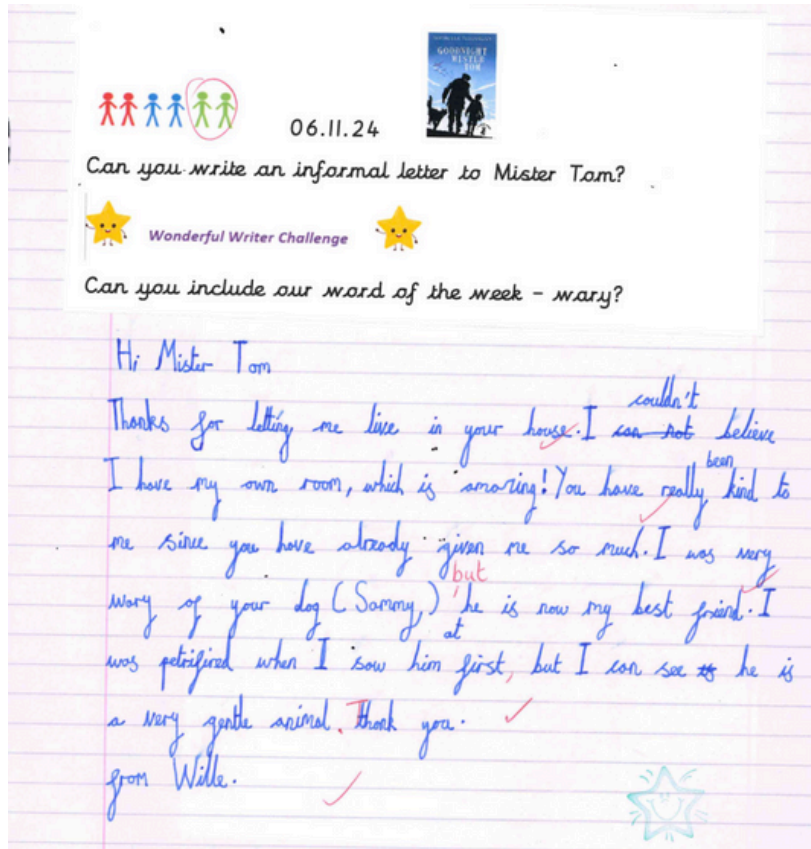 GOODNIGHT
MISTER
TOM
06.11.24
Can you write an informal letter to Mister Tom?
Wonderful Writer Challenge
Can you include our word of the week - wary?
Hi Mister Tom
couldn't
Thanks for letting me live in your house. I can not believe
been
I have my own room, which is amazing! You have really kind to
me since you have already given me so much. I was very
but
wary of your dog (Sammy,) he is now my best friend. I
at
was petrifired when I saw him first, but I can see he is
a very gentle animal. Thank you.
from Wille.